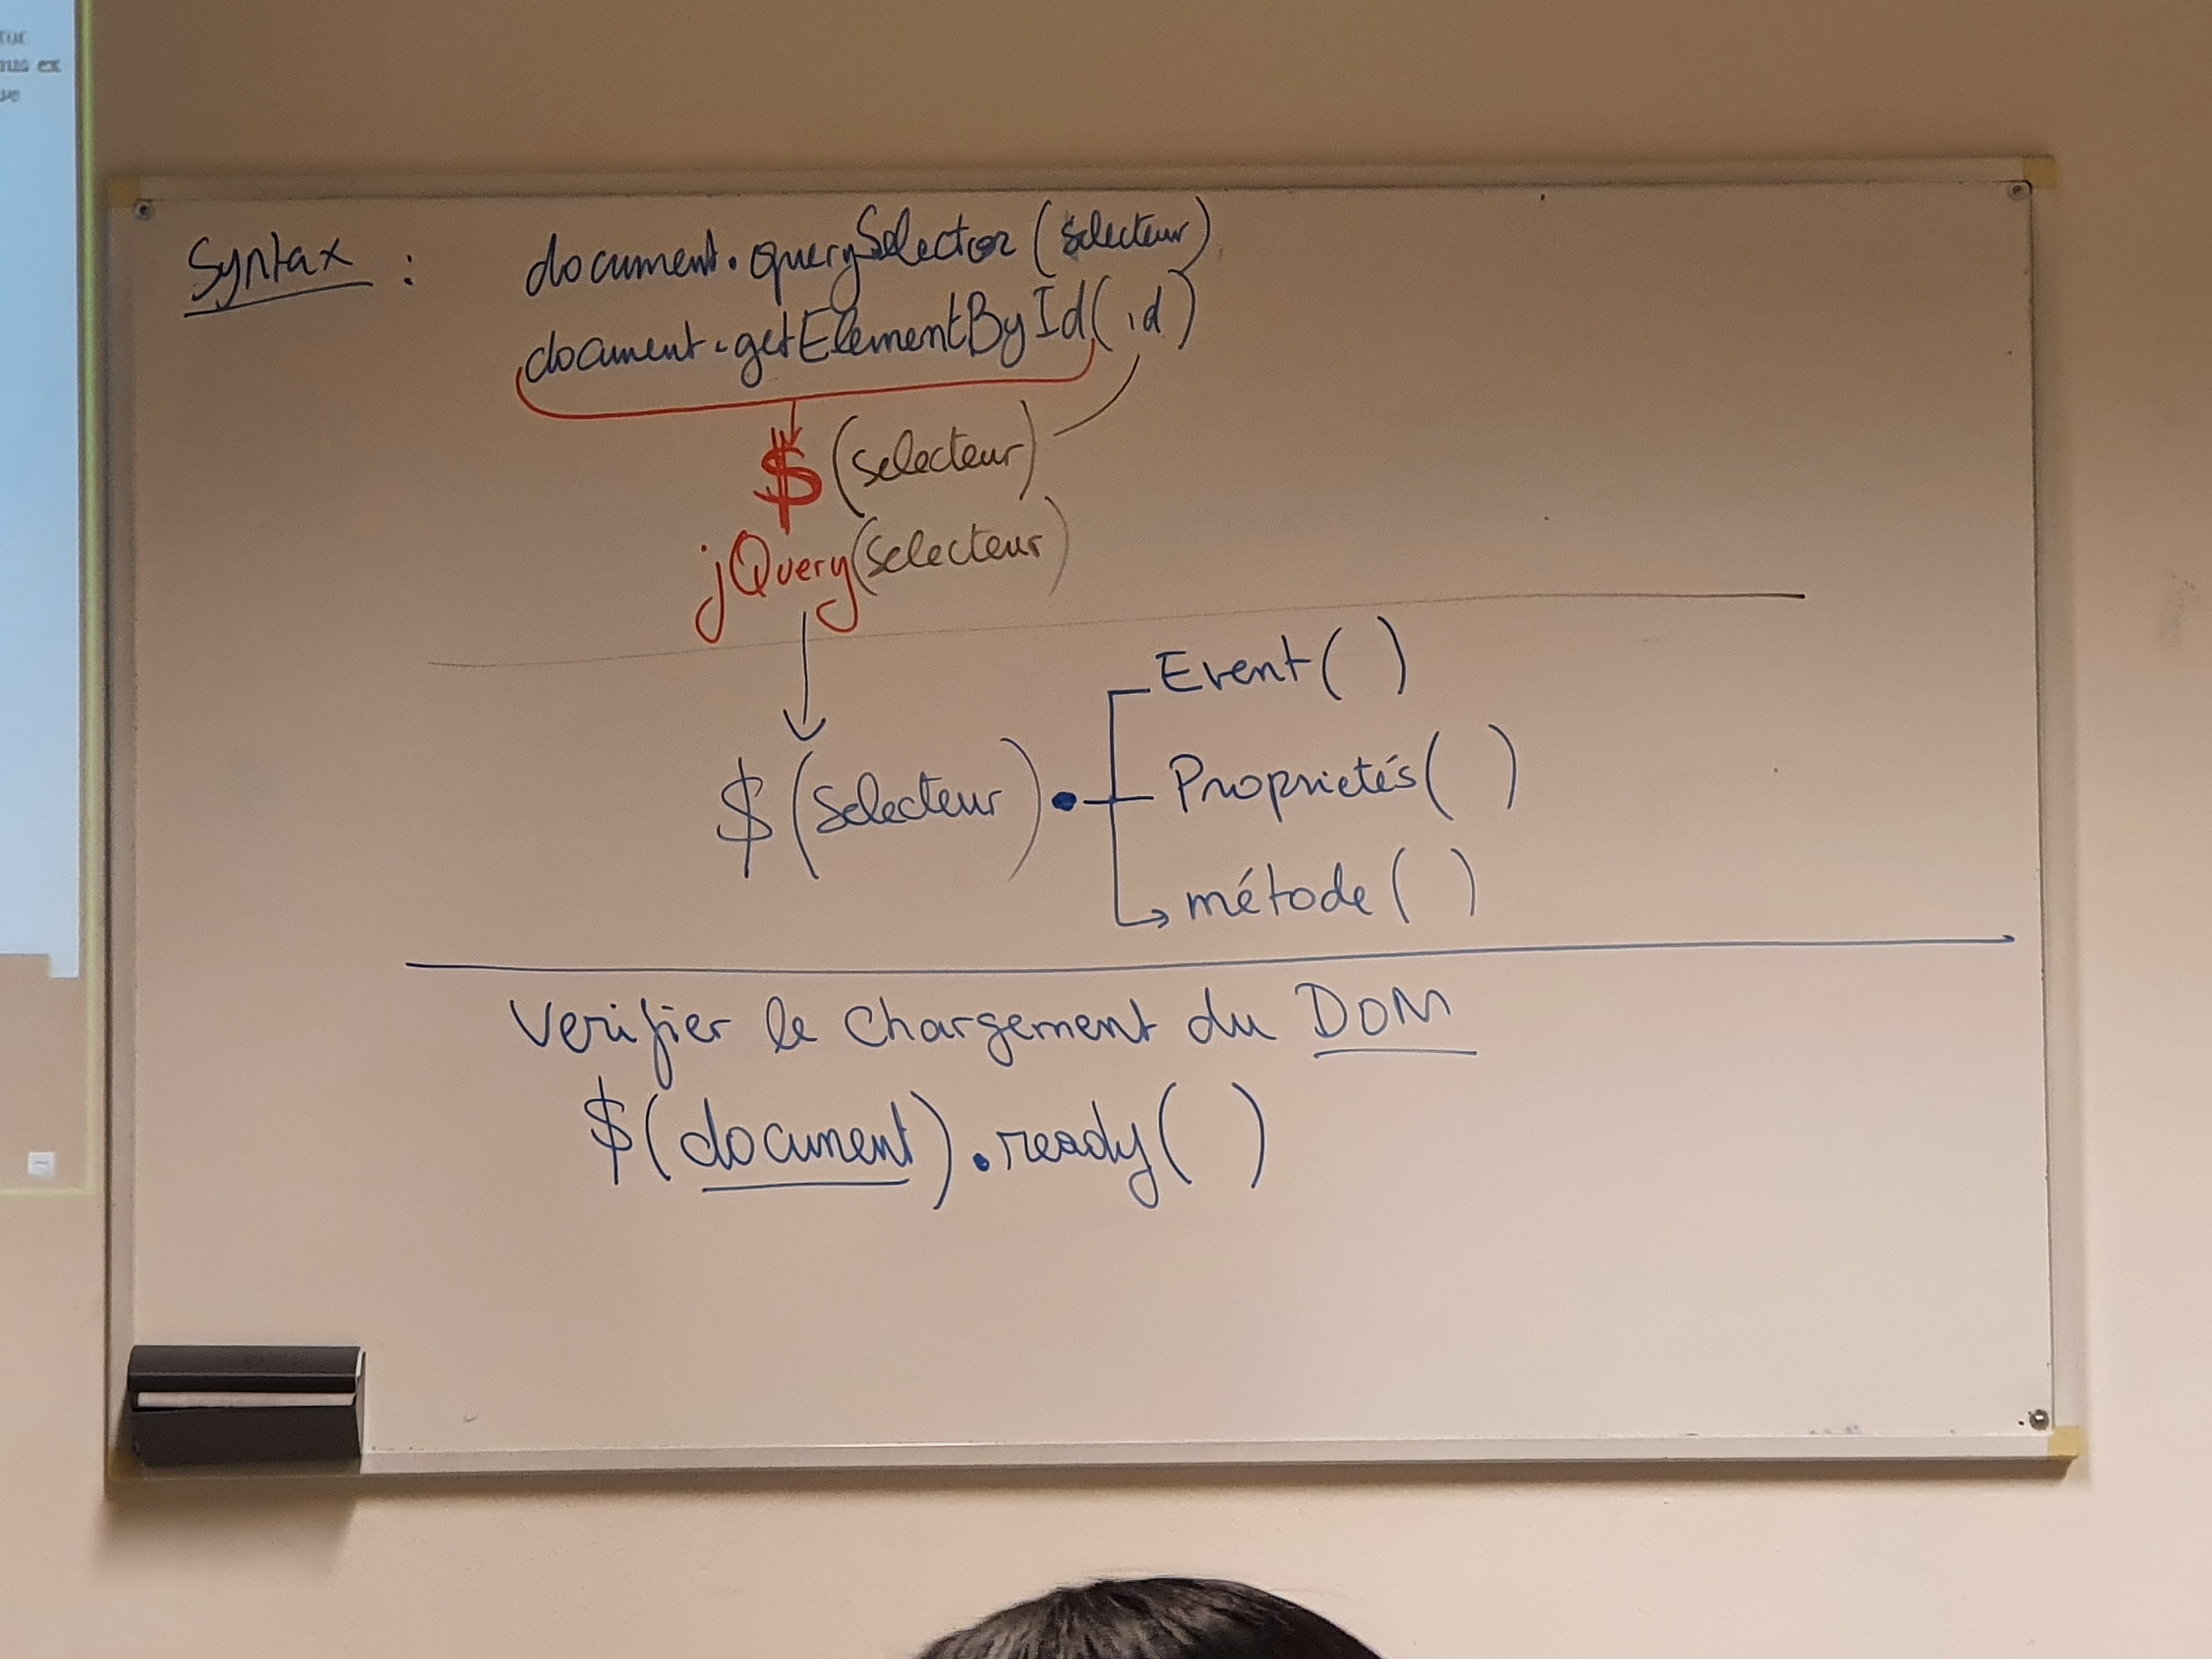 ex
Syntax : document.querySelector(selecteur)
document.getElementById(id)
$(selecteur)
jQuery(selecteur)
Event( )
$(selecteur).
Proprietés( )
métode( )
Verifier le chargement du DOM
$(document).ready( )